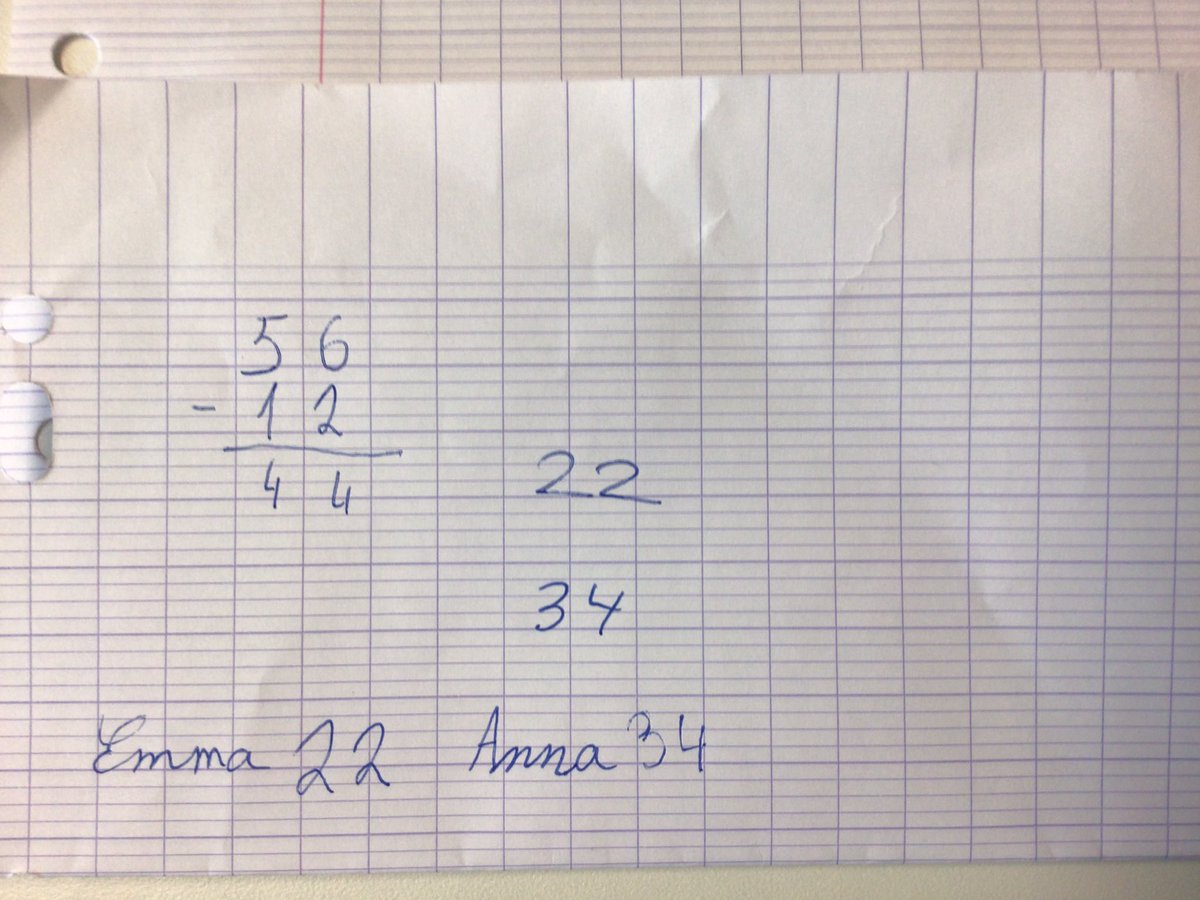 56
- 12
44
22
34
Emma 22 Anna 34